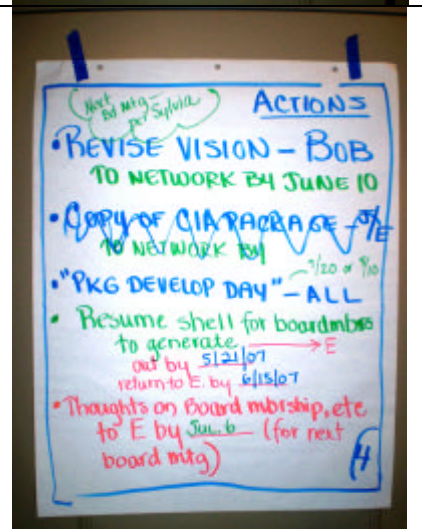 Next
Bd Mtg-
per Sylvia
ACTIONS
• REVISE VISION - BOB
TO NETWORK BY JUNE 10
• COPY OF CIA PACKAGE - S/E
TO NETWORK BY
• "PKG DEVELOP DAY" - ALL
• Resume shell for boardmbrs
to generate → E
out by 5/21/07
return to E. by 6/15/07
• Thoughts on Board mbrship, etc
to E by Jul. 6 (for next
board mtg)
4